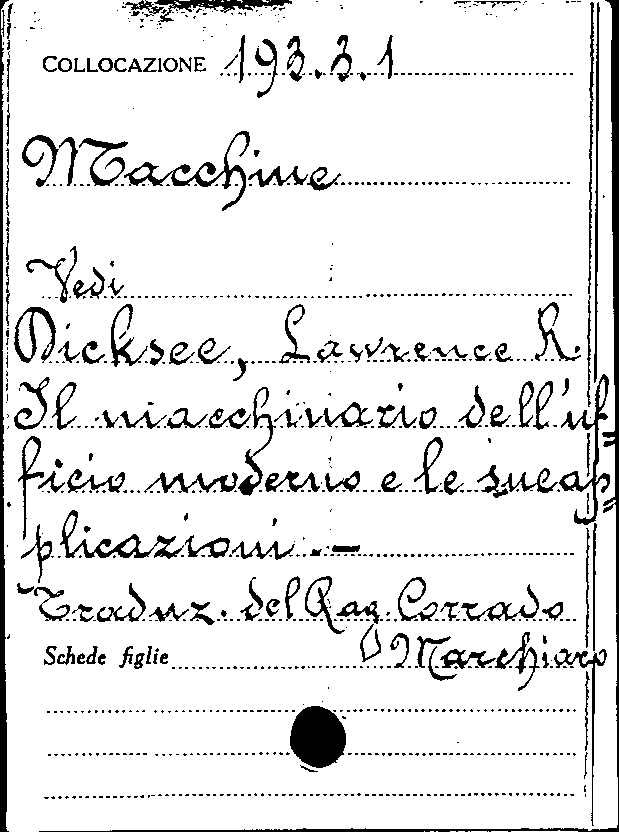 COLLOCAZIONE 193.3.1
Macchine
Vedi
Dicksee, Lawrence R.
Il macchinario dell'uf=
ficio moderno e le sue ap=
plicazioni.—
Traduz. del Rag. Corrado
Marchiaro
Schede figlie